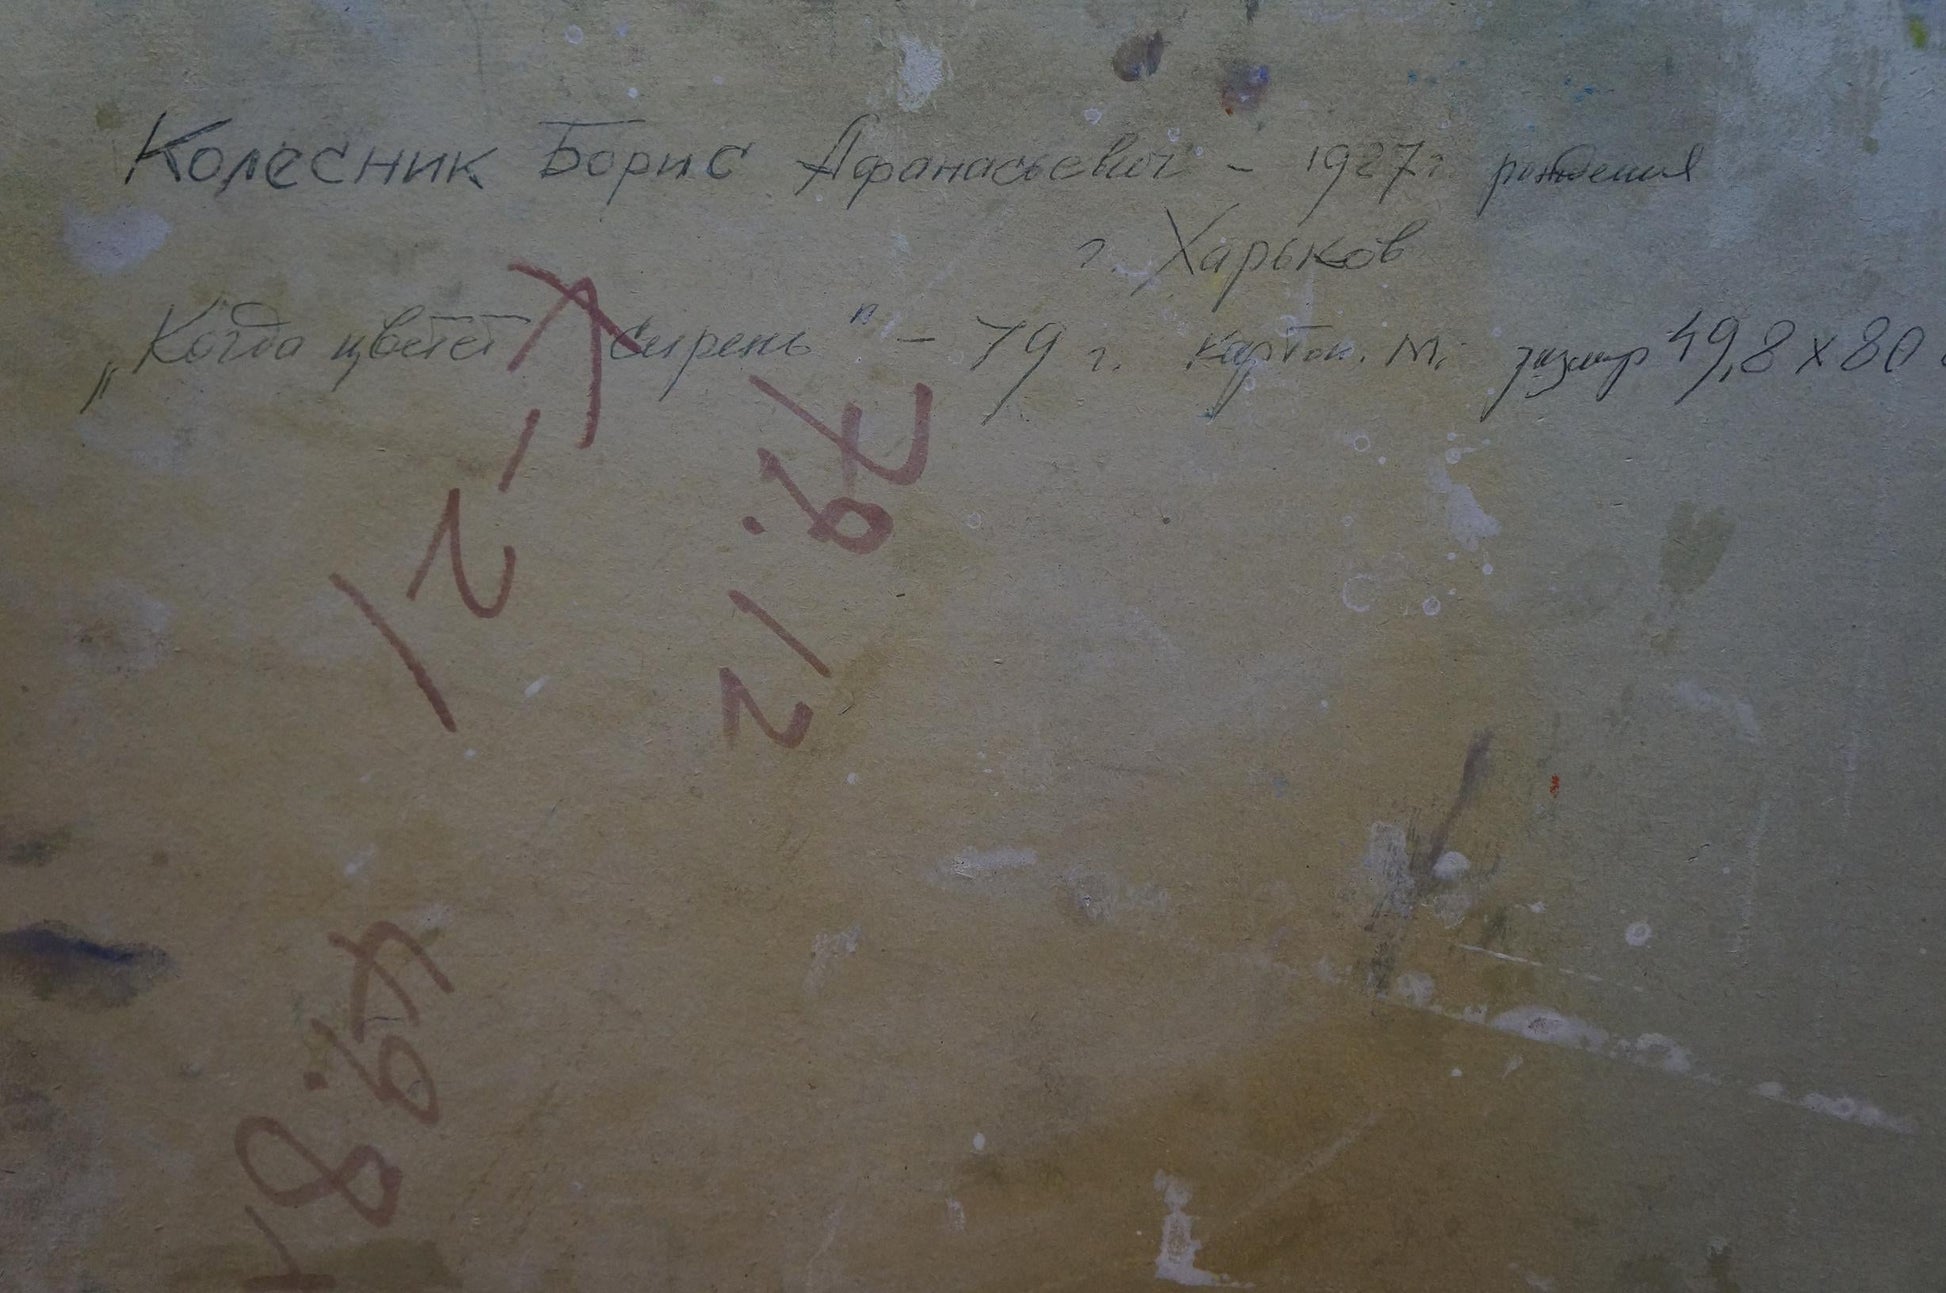 Колесник Борис Афанасьевич - 1927 г. рождения
г. Харьков
„Когда цветет сирень" - 79 г. картон. м. размер 49,8 x 80
79.12
49.8